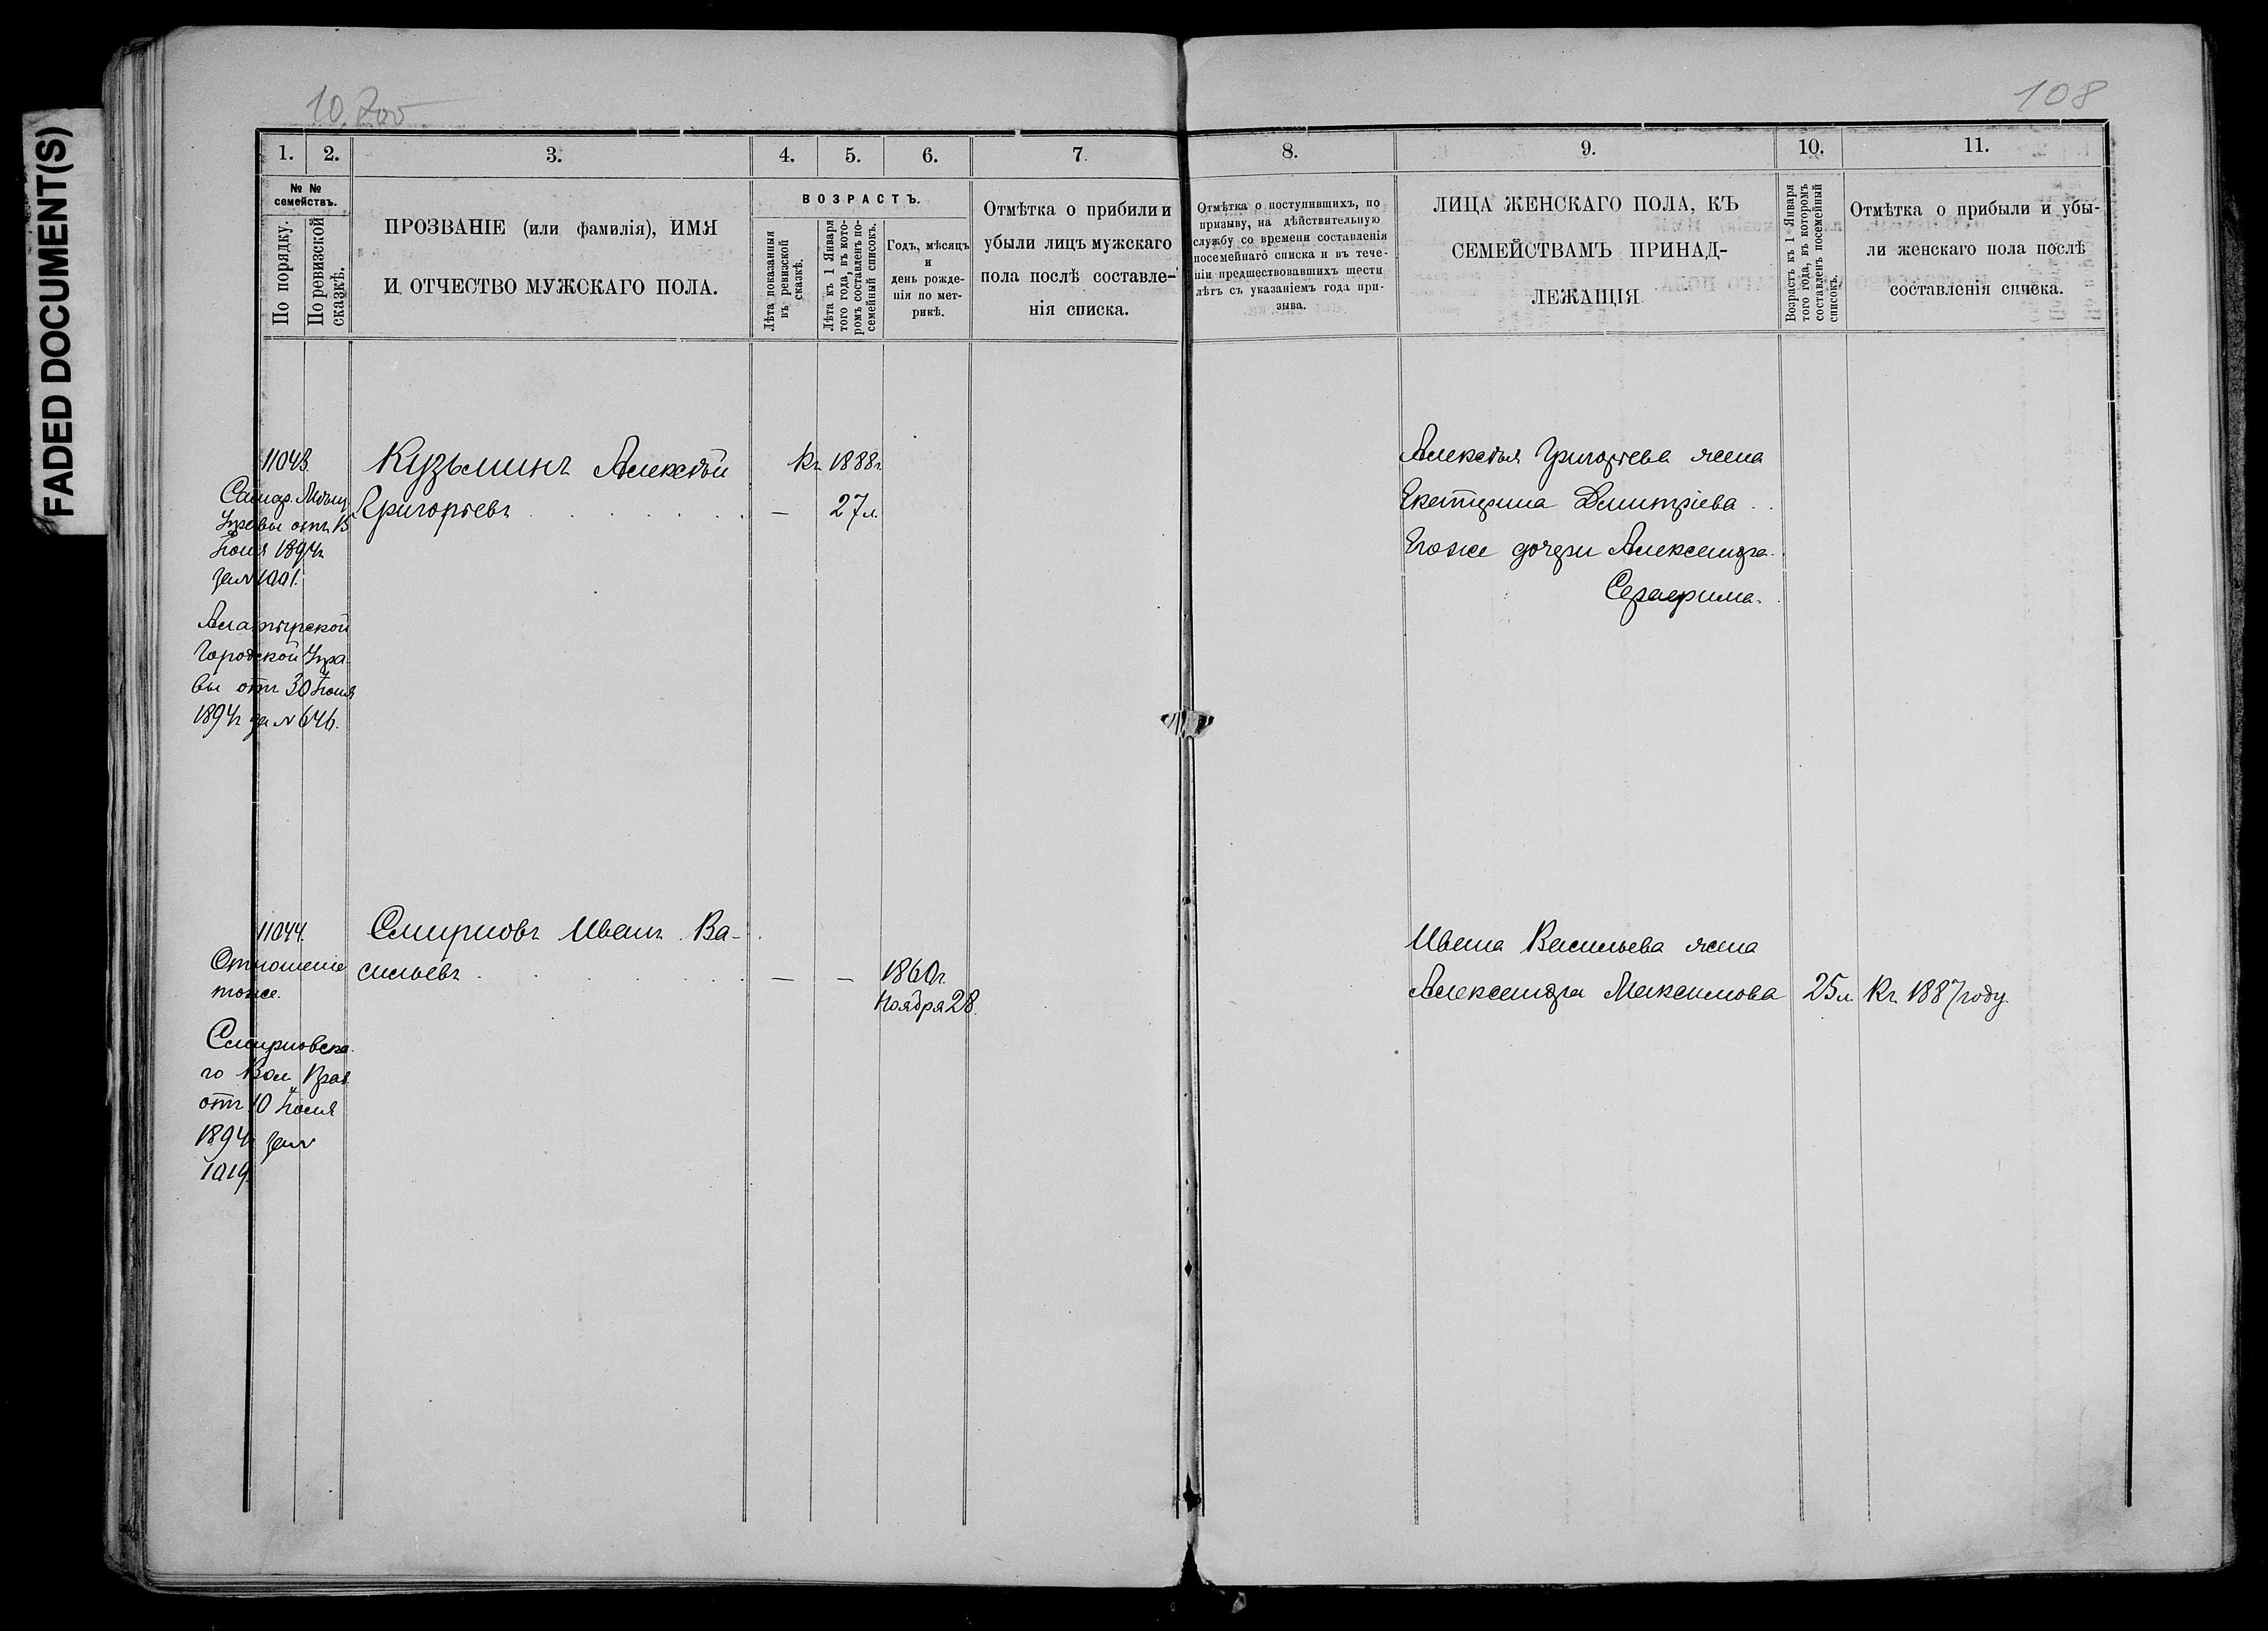 FADED DOCUMENT(S)
108
1. 2. 3. 4. 5. 6. 7. 8. 9. 10. 11.
№ № семействъ.
По порядку.
По ревизской сказкѣ.
ПРОЗВАНІЕ (или фамилія), ИМЯ
И ОТЧЕСТВО МУЖСКАГО ПОЛА.
ВОЗРАСТЪ.
Лѣта показанныя
въ ревизской
сказкѣ.
Лѣта къ 1 Января
того года, въ кото-
ромъ составленъ по-
семейный списокъ.
Годъ, мѣсяцъ
и
день рожде-
нія по мет-
рикѣ.
Отмѣтка о прибили и
убыли лицъ мужскаго
пола послѣ составле-
нія списка.
Отмѣтка о поступившихъ, по
призыву, на дѣйствительную
службу со времени составленія
посемейнаго списка и въ тече-
ніи предшествовавшихъ шести
лѣтъ съ указаніемъ года при-
зыва.
ЛИЦА ЖЕНСКАГО ПОЛА, КЪ
СЕМЕЙСТВАМЪ ПРИНАД-
ЛЕЖАЩІЯ
Возрастъ къ 1 Января
того года, въ которомъ
составленъ посемейный
списокъ.
Отмѣтка о прибыли и убы-
ли женскаго пола послѣ
составленія списка.
11043.
Самар. Мѣщ.
Управы отъ 13
Іюня 1894г
за № 1001.
Алатырской
Городской Упра-
вы отъ 30 Іюня
1894г за № 646.
Кузьминъ Алексѣй
Григорьевъ — 27л.
Къ 1888г
Алексѣя Григорьева жена
Екатерина Дмитріева
Егоже дочери Александра.
Серафима.
11044.
Отношеніе
тоже.
Смирновска-
го Вол. Прав.
отъ 10 Іюня
1894г за №
1019.
Смирновъ Иванъ Ва-
сильевъ — — 1860г.
Ноября 28.
Ивана Васильева жена
Александра Максимова 25л. Къ 1887 году